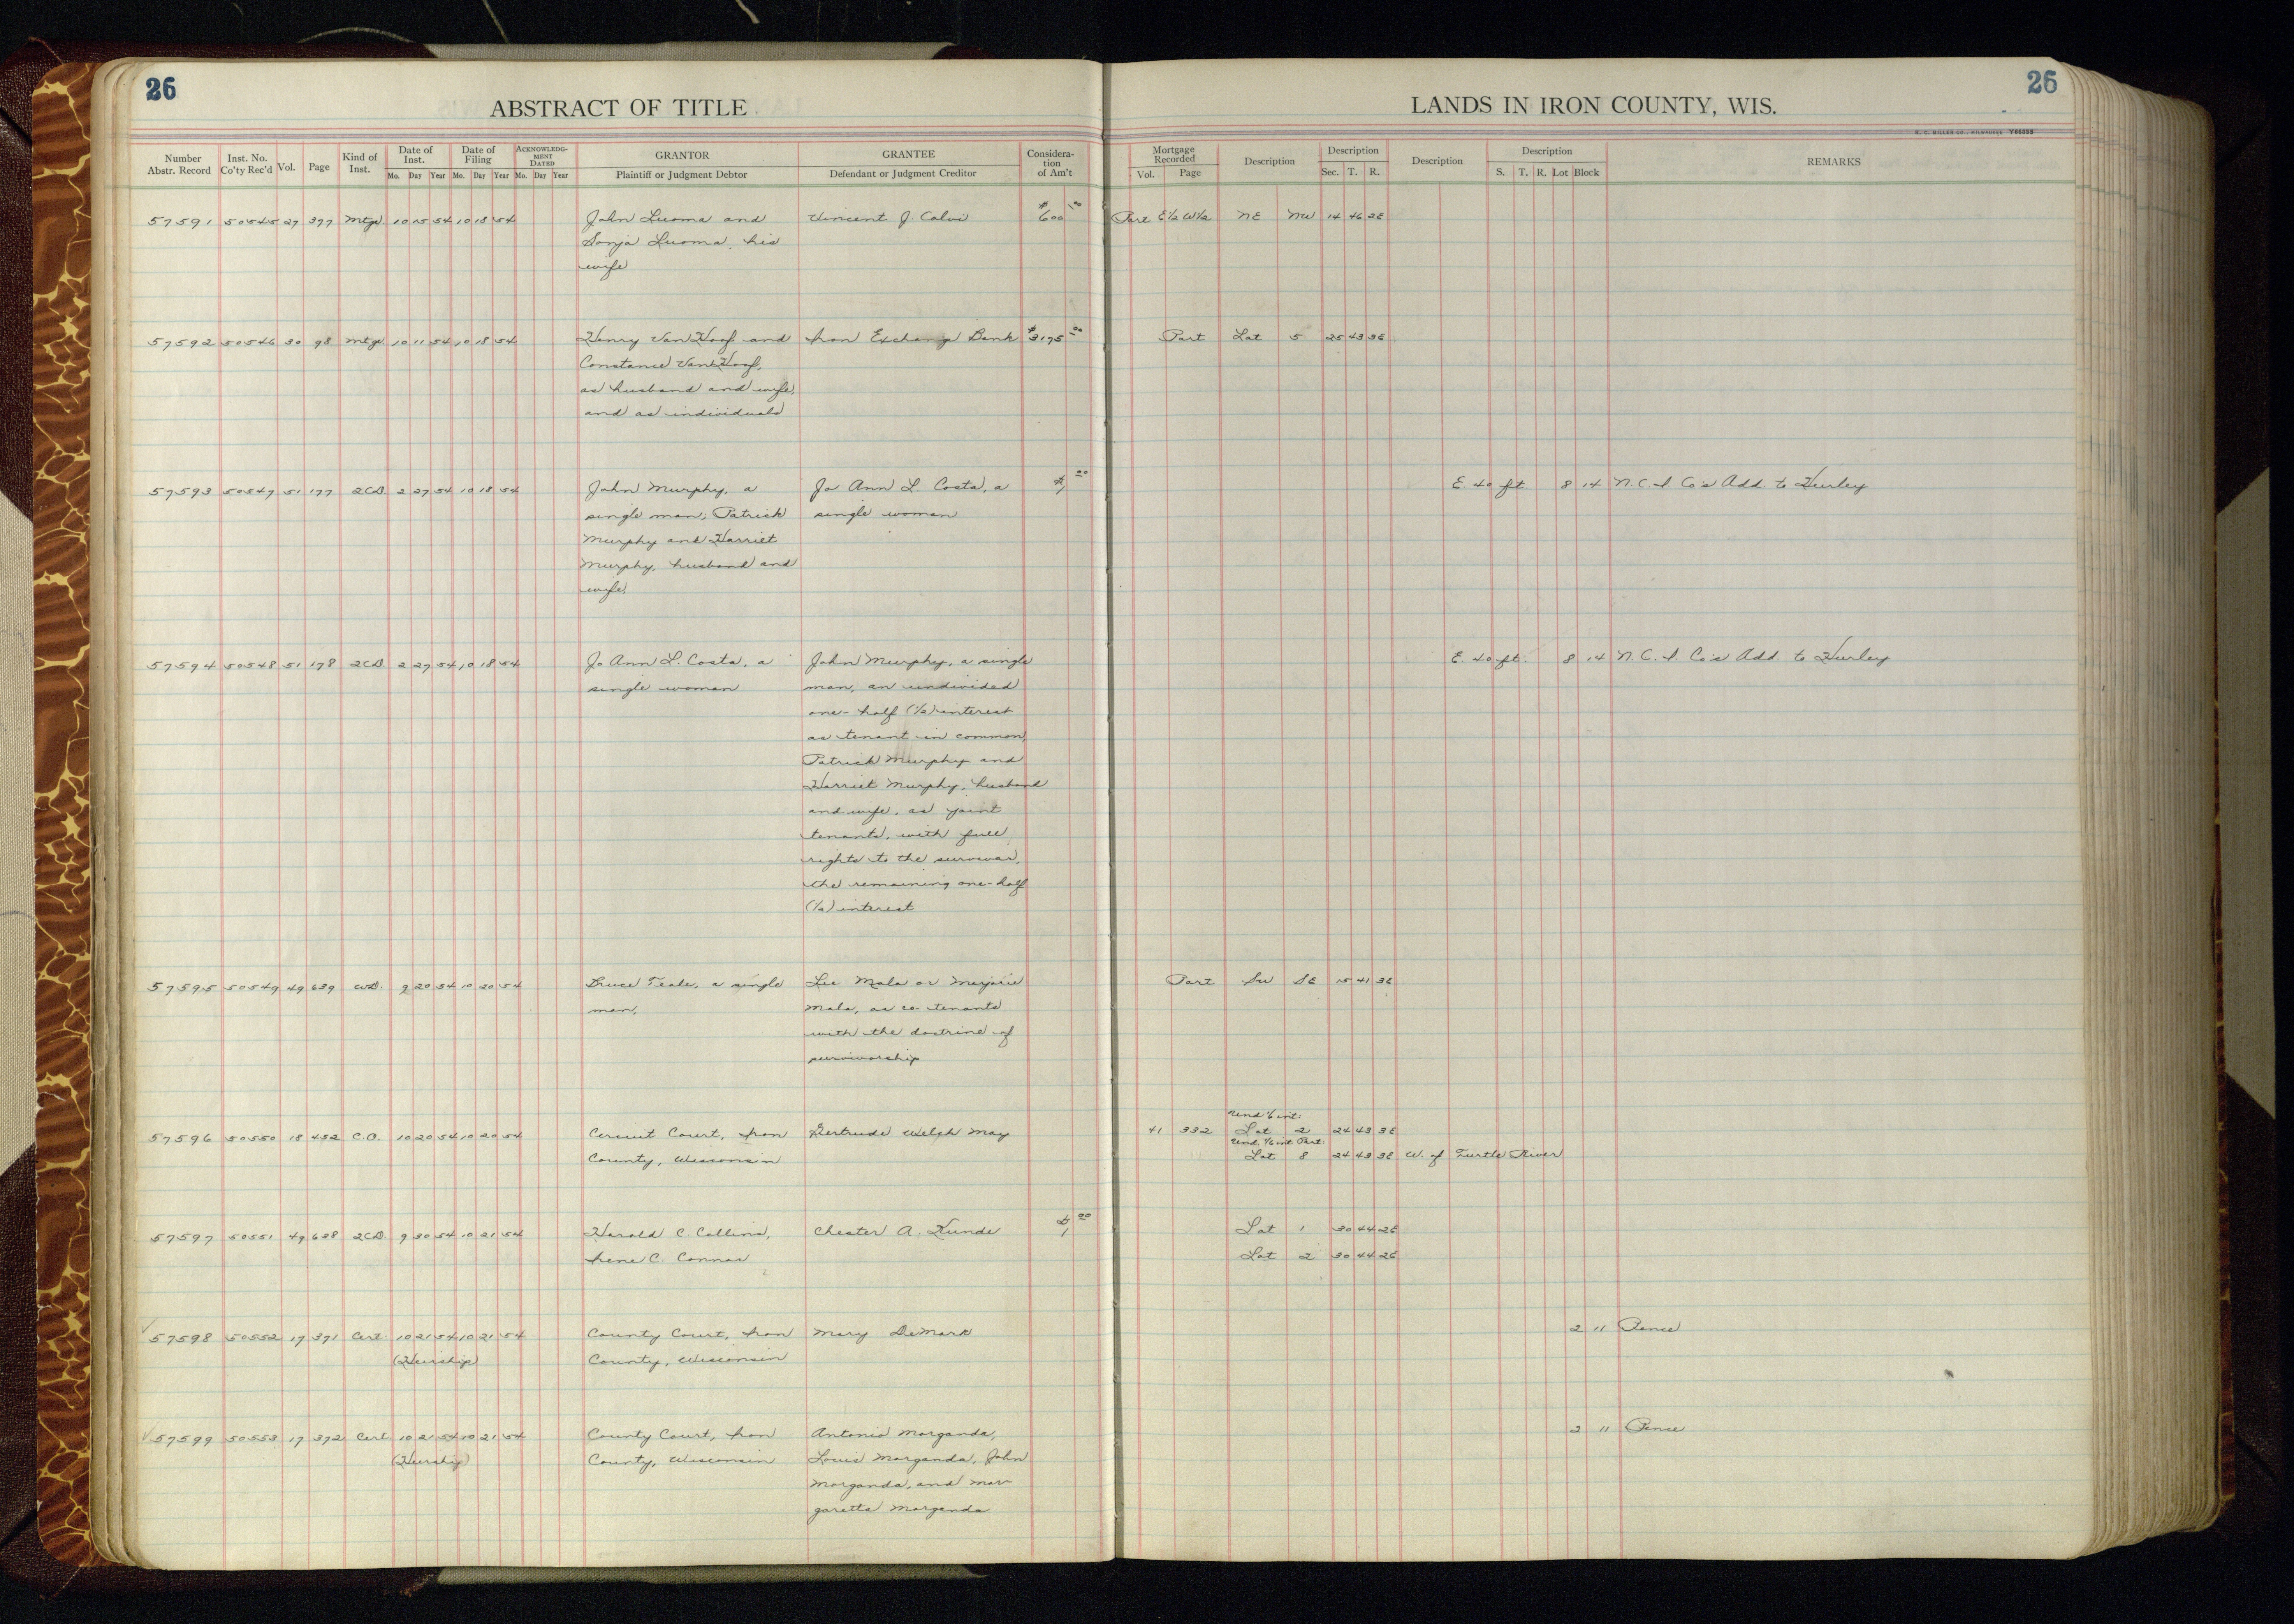 26
ABSTRACT OF TITLE
LANDS IN IRON COUNTY, WIS.
26
Number Abstr. Record Inst. No. Co'ty Rec'd Vol. Page Kind of Inst. Date of Inst. Mo. Day Year Date of Filing Mo. Day Year ACKNOWLEDG-MENT DATED Mo. Day Year GRANTOR Plaintiff or Judgment Debtor GRANTEE Defendant or Judgment Creditor Considera-tion of Am't Mortgage Recorded Vol. Page Description Description Sec. T. R. Description Description S. T. R. Lot Block REMARKS
57591 50545 27 377 Mtge. 10 15 54 10 18 54 John Luoma and Vincent J. Calvi $600 00 Part E½ W½ NE NW 14 46 2E
Sonja Luoma, his
wife
57592 50546 30 98 Mtge 10 11 54 10 18 54 Henry Van Hoof and Iron Exchange Bank $3175 00 Part Lot 5 25 43 3E
Constance Van Hoof,
as husband and wife,
and as individuals
57593 50547 51 177 2CD. 2 27 54 10 18 54 John Murphy, a Jo Ann L. Costa, a $1 00 E. 40 ft. 8 14 N.C.I. Co's Add. to Hurley
single man; Patrick single woman
Murphy and Harriet
Murphy, husband and
wife.
57594 50548 51 178 2CD. 2 27 54 10 18 54 Jo Ann L. Costa, a John Murphy, a single E. 40 ft. 8 14 N.C.I. Co's Add. to Hurley
single woman man, an undivided
one-half (½) interest
as tenant in common,
Patrick Murphy and
Harriet Murphy, husband
and wife, as joint
tenants, with full
rights to the survivor,
the remaining one-half
(½) interest
57595 50549 49 639 WD. 9 20 54 10 20 54 Bruce Teale, a single Lee Mala or Marjorie Part SW SE 15 41 3E
man, Mala, as co-tenants
with the doctrine of
survivorship
Und 1/6 int.
57596 50550 18 452 C.O. 10 20 54 10 20 54 Circuit Court, Iron Gertrude Welch May 41 332 Lot 2 24 43 3E
Und. 1/6 int Part.
County, Wisconsin Lot 8 24 43 3E W. of Turtle River
57597 50551 49 638 2CD. 9 30 54 10 21 54 Harold C. Collins, Chester A. Kunde $1 00 Lot 1 30 44 2E
Irene C. Connor Lot 2 30 44 2E
57598 50552 17 371 Cert. 10 21 54 10 21 54 County Court, Iron Mary DeMark 2 11 Pence
(Heirship) County, Wisconsin
57599 50553 17 372 Cert. 10 21 54 10 21 54 County Court, Iron Antonio Morganda, 2 11 Pence
(Heirship) County, Wisconsin Louis Morganda, John
Morganda, and Mar-
garetta Morganda